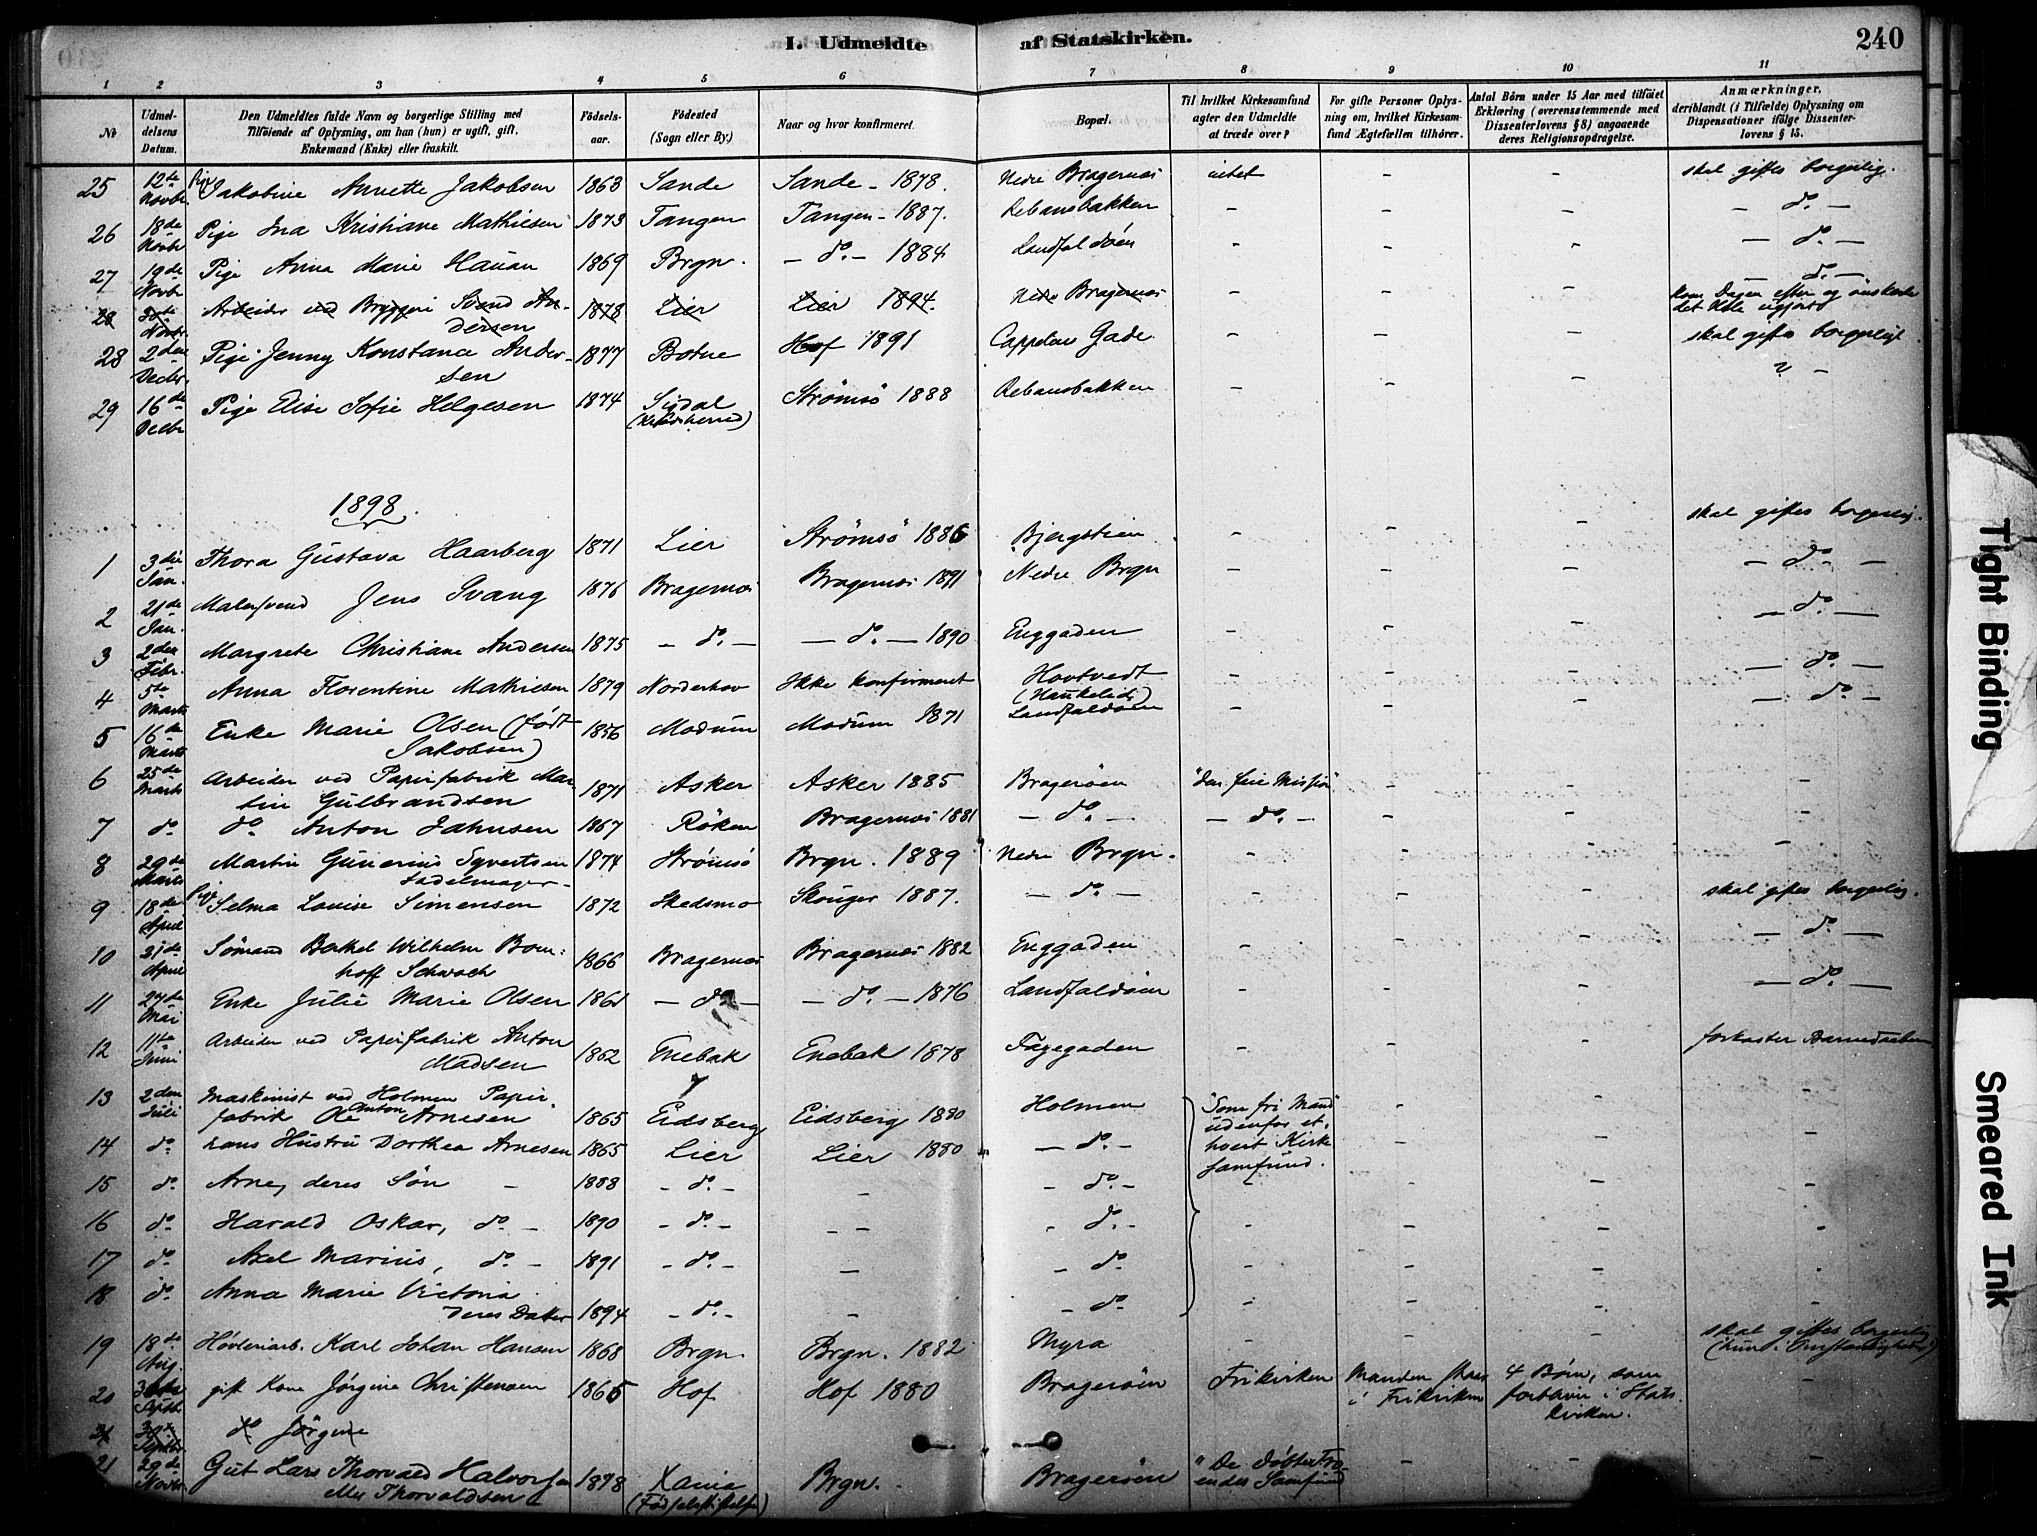 I. Udmeldte af Statskirken. 240
1 2 3 4 5 6 7 8 9 10 11
No
Udmeldelsens Datum.
Den Udmeldtes fulde Navn og borgerlige Stilling med Tilføiende af Oplysning, om han (hun) er ugift, gift, Enkemand (Enke) eller fraskilt.
Fødselsaar.
Fødested (Sogn eller By.)
Naar og hvor konfirmeret.
Bopæl.
Til hvilket Kirkesamfund agter den Udmeldte at træde over?
For gifte Personer Oplysning om, hvilket Kirkesamfund Ægtefællen tilhører.
Antal Børn under 15 Aar med tilføiet Erklæring (overensstemmende med Dissenterlovens § 8) angaaende deres Religionsopdragelse.
Anmærkninger, deriblandt (i Tilfælde) Oplysning om Dispensationer ifølge Dissenterlovens § 15.
25 12te Novbr. Pige Jakobine Annette Jakobsen 1863 Sande Sande - 1878. Nedre Bragernæs intet - - skal giftes borgerlig.
26 18de Novbr Pige Ina Kristiane Mathiesen 1873 Tangen Tangen - 1887. Rebansbakken - - - - do. -
27 19de Novbr Pige Anna Marie Hauan 1869 Brgn. - do. - 1884 Landfaldöen - - - - do. -
28 Novbr. Arbeider ved Bryggeri Svend Andersen 1878 Lier Lier 1894. Nedre Bragernæs - - - - do. -
kom Dagen efter og ønskede det ikke
28 2den Decbr. Pige Jenny Konstance Andersen 1877 Botne Hof 1891 Cappelens Gade - - - skal giftes borgerligt
29 16de Decbr Pige Elise Sofie Helgesen 1874 Sigdal Strömsö 1888 Rebansbakken - - -
1898.
1 3die Jan. Thora Gustava Haarberg 1871 Lier Strömsö 1886 Bjergstien - - - skal giftes borgerlig.
2 21de Jan. Malersvend Jens Svang 1876 Bragernæs Bragernæs 1891 Nedre Brgn - - - - do. -
3 2den Febr. Margrete Christiane Andersen 1875 - do. - - do. - 1890 Enggaden - - - - do. -
4 5te Marts Anna Florentine Mathiesen 1879 Norderhov Ikke konfirmeret Hovtvedt - - - - do. -
5 16de Marts Enke Marie Olsen (født Jakobsen) 1856 Modum Modum 1871 Landfaldöen - - - - do. -
6 25de Marts Arbeider ved Papirfabrik Martin Gulbrandsen 1871 Asker Asker 1885 Bragerøen "den frie Mission" - - -
7 do do Anton Jahnsen 1867 Röken Bragernæs 1881 - do. - - do. - - - -
8 29de Marts Martin Gunerius Syvertsen Sadelmager - 1874 Strömsö Brgn. 1889 Nedre Brgn. - - - -
9 18de April Pige Selma Lovise Simensen 1872 Skedsmo Skouger 1887. - do. - - - - skal giftes borgerlig.
10 21de April Sømand Barthel Wilhelm Bomhoff Schwach 1866 Bragernæs Bragernæs 1882 Enggaden - - - - do. -
11 27de Mai Enke Julie Marie Olsen 1861 - do - - do. - 1876 Landfaldöen - - - - do. -
12 11te Juni Arbeider ved Papirfabrik Anton Madsen 1862 Enebak Enebak 1878 Fagegaden - - - forkaster Barnedaaben
13 2den Juli Maskinist ved Holmen Papirfabrik Ole Anton Arnesen 1865 Eidsberg Eidsberg 1880 Holmen "Som fri Mand" udenfor ethvert Kirkesamfund. - - -
14 do. hans Hustru Dorthea Arnesen 1865 Lier Lier 1880 - do. - - - -
15 do. Arne, deres Søn - 1888 - do. - - - do. - - - - -
16 do. Harald Oskar, do. - 1890 - do. - - - - do. - - - - -
17 do. Axel Marius, do. - 1891 - do. - - - do - - - -
18 do. Anna Marie Victoria deres Datter 1894 - do. - - - do - - - -
19 18de Aug. Høvleriarb. Karl Johan Hansen 1868 Brgn. Brgn. 1882 Myra - - - skal giftes borgerlig
20 Septbr. gift Kone Jørgine Christensen 1865 Hof Hof 1880 Bragerøen Frikirken Manden staar i Frikirken 4 Børn, som forbliver i Statskirken. -
Septbr. do Jörgine
21 29de Novbr. Gut Lars Thorvald Halvorsen eller Thorvaldsen 1878 Xania (Fødselsstiftelsen) Brgn. Bragerøen "De døbte Troendes Samfund - - -
Tight Binding
Smeared Ink